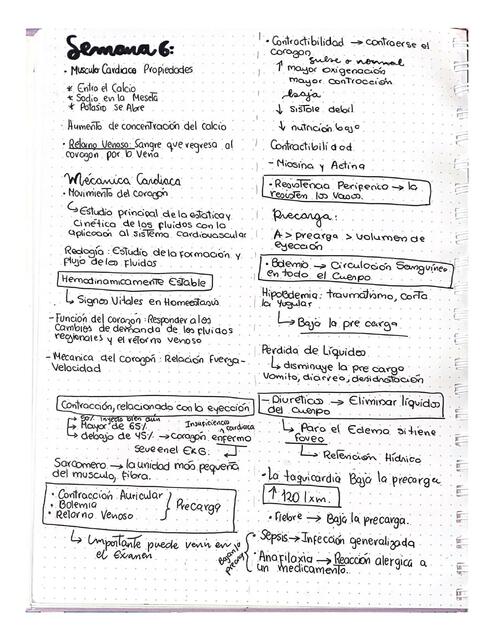 Semana 6:
• Musculo Cardiaco Propiedades
* Entro el Calcio
* Sodio en la Meseta
* Potasio se Abre
• Aumento de concentración del calcio
• Retorno Venoso: Sangre que regresa al
corazon por la Vena
Mécanica Cardiaca
• Movimiento del corazón
↳ Estudio principal de la estatica y
Cinética de los fluidos con la
aplicación al sistema Cardiovascular
Reología: Estudio de la formación y
flujo de los Fluidos
Hemodinamicamente Estable
↳ Signos Vitales en Homeostasis
- Función del corazón: Responder a los
Cambios de demanda de los fluidos
regionales y el retorno venoso
- Mecanica del Corazón: Relación Fuerza-
Velocidad
Contracción, relacionado con la eyección
→ 50%
→ Mayor de 65% Insuficiencia cardiaca
→ debajo de 45% → corazón enfermo
Se ve en el EKG.
Sarcomero → la unidad mas pequeña
del musculo, fibra.
• Contracción Auricular
• Bolemia
• Retorno Venoso
} Precarga
↳ Importante puede venir en
el Exámen
• Contractibilidad → contraerse el
corazon
sube o normal
↑ mayor oxigenación
mayor contracción
baja
↓ Sistole debil
↓ nutrición bajo
Contractibilidad
- Miosina y Actina
• Resistencia Periferica → la
resisten los Vasos.
Precarga:
A > prearga > volumen de
eyección
• Bolemia → Circulación Sanguínea
en todo el Cuerpo
Hipobolemia: traumatismo, corta
la Yugular
↳ Bajo la pre carga
Perdida de Líquidos
↳ disminuye la pre carga
Vomito, diarrea, deshidratación
- Diureticos → Eliminar líquidos
del Cuerpo
↳ Para el Edema si tiene
fovea
↳ Retención Hídrica
- La taquicardia Bajo la precarga
↑ 120 lxm.
• Fiebre → Bajo la precarga.
Bajan la Precarga {
• Sepsis → Infección generalizada
• Anafilaxia → Reacción alergica a
un medicamento.